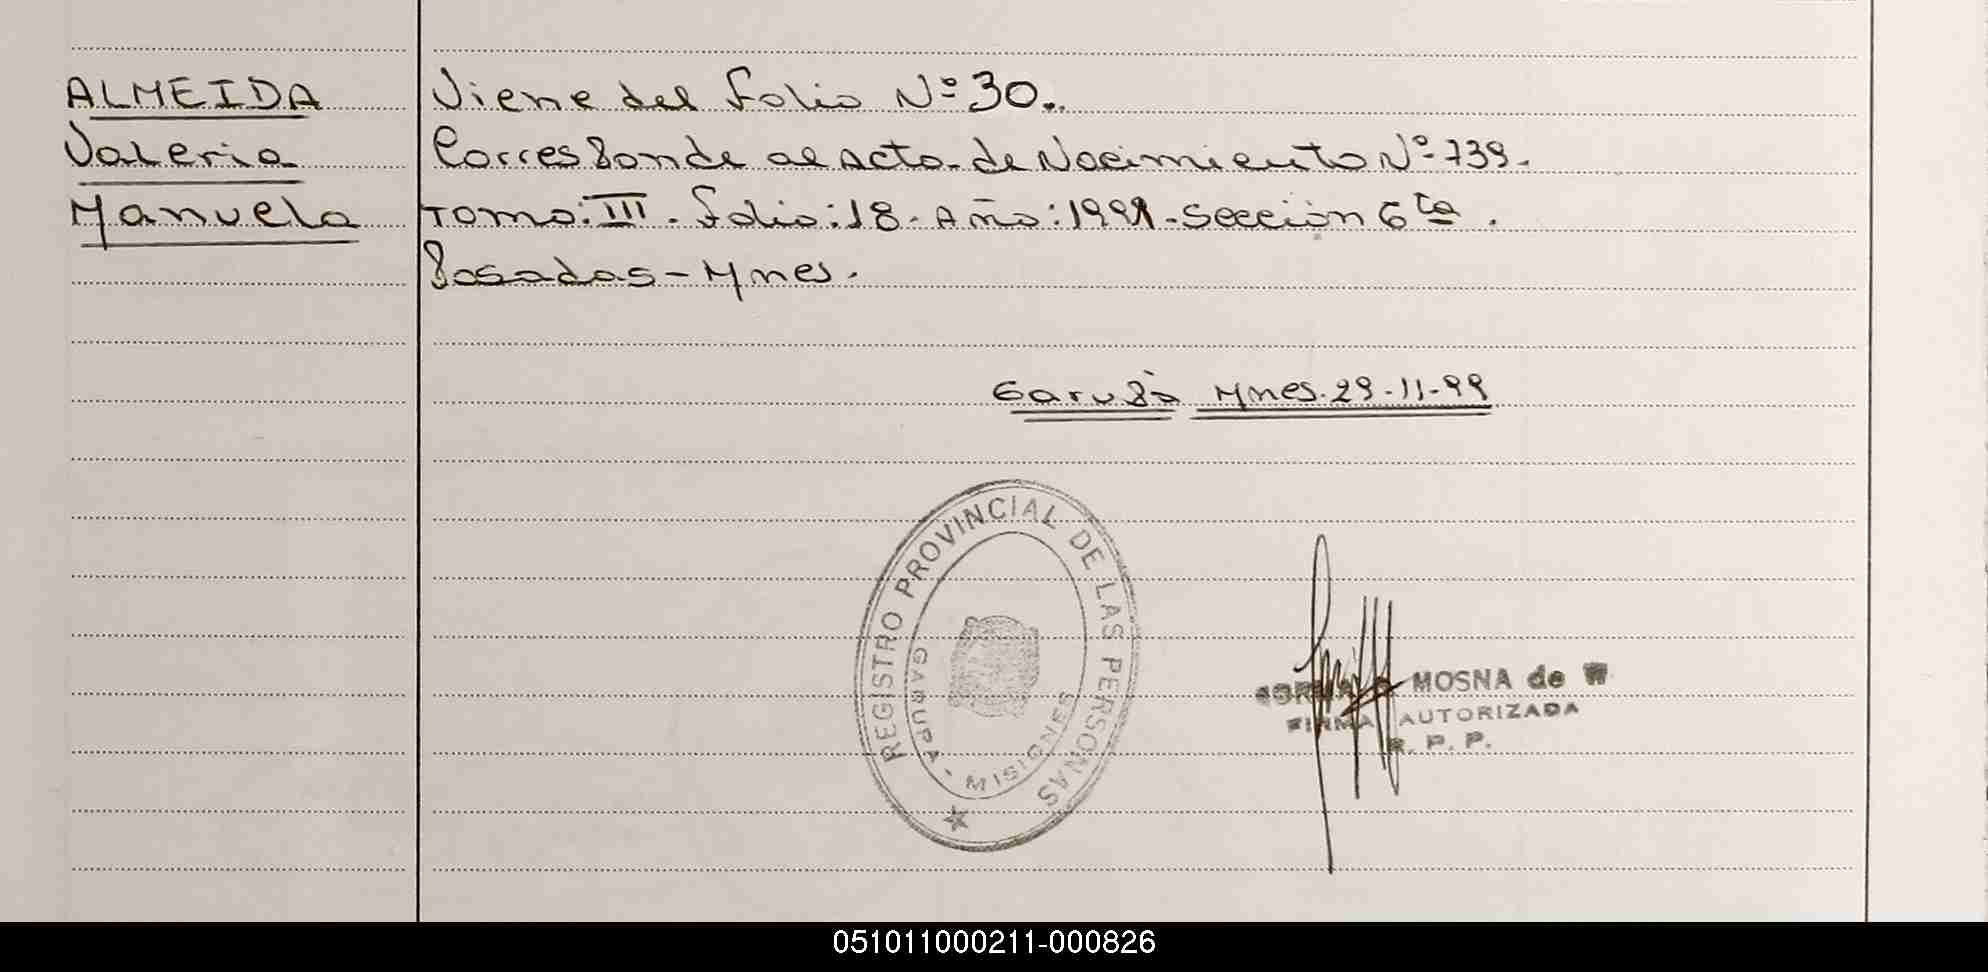 ALMEIDA Viene del Folio Nº 30..
Valeria Corresponde al Acta de Nacimiento Nº 739.
Manuela Tomo: III. Folio: 18. Año: 1991. Sección 6ta.
Posadas - Mnes.
Garupá Mnes. 29-11-99
REGISTRO PROVINCIAL DE LAS PERSONAS
GARUPA - MISIONES
MOSNA de W
FIRMA AUTORIZADA
R. P. P.
051011000211-000826